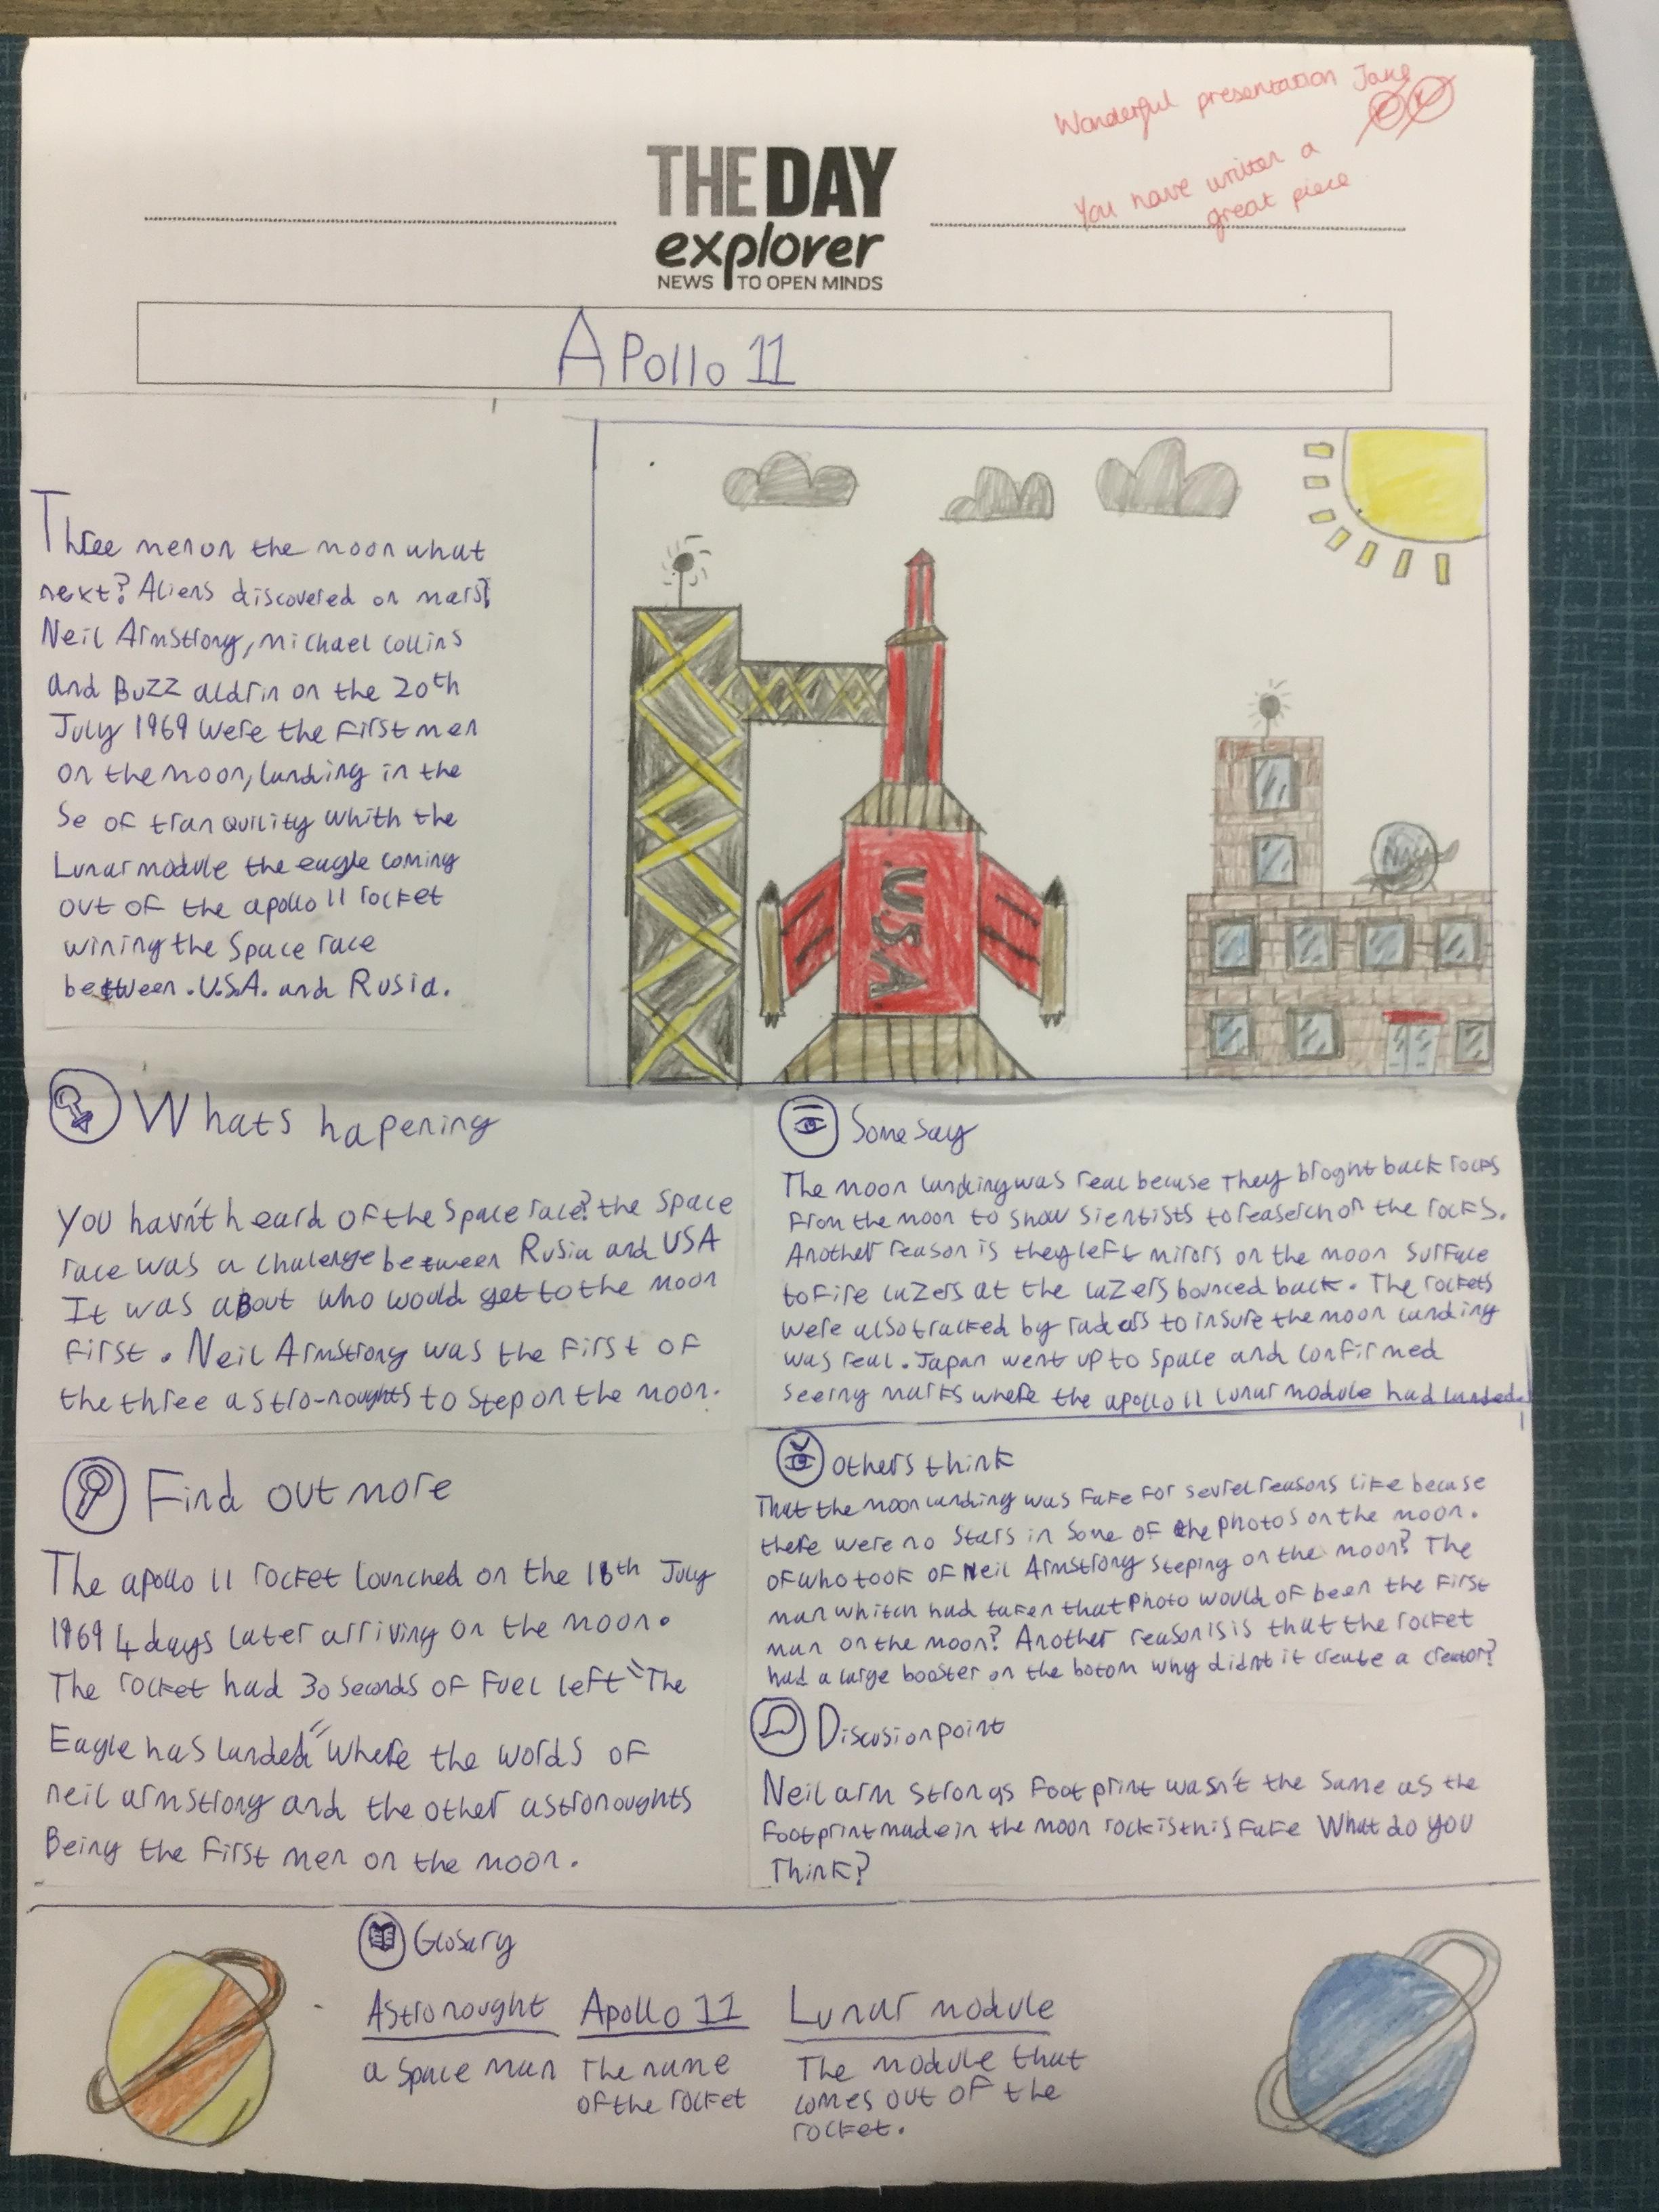 Wonderful presentation Jake
You have written a
great piece
THE DAY
explorer
NEWS TO OPEN MINDS
Apollo 11
Three men on the moon what
next? Aliens discovered on mars?
Neil Armstrong, michael collins
and Buzz aldrin on the 20th
July 1969 were the first men
on the moon, landing in the
Se of tranquility whith the
Lunar module the eagle coming
out of the apollo 11 rocket
wining the Space race
between .U.S.A. and Rusia.
USA
Whats hapening
You havn't heard of the Space race? the Space
race was a chalenge between Rusia and USA
It was aBout who would get to the moon
first. Neil Armstrong was the first of
the three astro-noughts to step on the moon.
Find out more
The apollo 11 rocket lounched on the 16th July
1969 4 days later arriving on the moon.
The rocket had 30 seconds of fuel left "The
Eagle has landed" where the words of
neil armstrong and the other astronoughts
Being the first men on the moon.
Some say
The moon landing was real becuse They broght back rocks
from the moon to show sientists to reaserch on the rocks.
Another reason is they left mirors on the moon surface
to fire lazers at the lazers bounced back. The rockets
were also tracked by radars to insure the moon landing
was real. Japan went up to space and confirmed
seeing marks where the apollo 11 lunar module had landed.
Others think
That the moon landing was fake for sevrel reasons like becuse
there were no stars in some of the photos on the moon.
of who took of Neil Armstrong steping on the moon? The
man whitch had taken that photo would of been the first
man on the moon? Another reason is is that the rocket
had a large booster on the botom why didnt it create a creator?
Discusion point
Neil arm strongs foot print wasn't the same as the
footprint made in the moon rock is this fake What do you
Think?
Glosary
Astronought
a Space man
Apollo 11
The name
of the rocket
Lunar module
The module that
comes out of the
rocket.